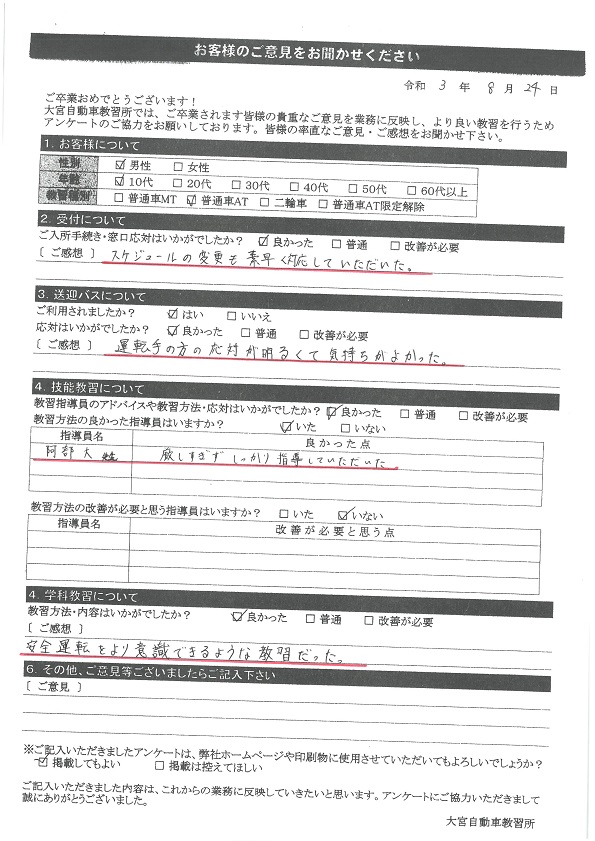 お客様のご意見をお聞かせください
令和 3 年 8 月 24 日
ご卒業おめでとうございます！
大宮自動車教習所では、ご卒業されます皆様の貴重なご意見を業務に反映し、より良い教習を行うため
アンケートのご協力をお願いしております。皆様の率直なご意見・ご感想をお聞かせ下さい。
1. お客様について
性別 ☑ 男性 □ 女性
年齢 ☑ 10代 □ 20代 □ 30代 □ 40代 □ 50代 □ 60代以上
教習種別 □ 普通車MT ☑ 普通車AT □ 二輪車 □ 普通車AT限定解除
2. 受付について
ご入所手続き・窓口応対はいかがでしたか？ ☑ 良かった □ 普通 □ 改善が必要
〔 ご感想 〕 スケジュールの変更も素早く対応していただいた。
3. 送迎バスについて
ご利用されましたか？ ☑ はい □ いいえ
応対はいかがでしたか？ ☑ 良かった □ 普通 □ 改善が必要
〔 ご感想 〕 運転手の方の応対が明るくて気持ちがよかった。
4. 技能教習について
教習指導員のアドバイスや教習方法・応対はいかがでしたか？ ☑ 良かった □ 普通 □ 改善が必要
教習方法の良かった指導員はいますか？ ☑ いた □ いない
指導員名 良かった点
阿部大 厳しすぎずしっかり指導していただいた
教習方法の改善が必要と思う指導員はいますか？ □ いた ☑ いない
指導員名 改善が必要と思う点
4. 学科教習について
教習方法・内容はいかがでしたか？ ☑ 良かった □ 普通 □ 改善が必要
〔 ご感想 〕
安全運転をより意識できるような教習だった。
6. その他、ご意見等ございましたらご記入下さい
〔 ご意見 〕
※ご記入いただきましたアンケートは、弊社ホームページや印刷物に使用させていただいてもよろしいでしょうか？
☑ 掲載してもよい □ 掲載は控えてほしい
ご記入いただきました内容は、これからの業務に反映していきたいと思います。アンケートにご協力いただきまして
誠にありがとうございました。
大宮自動車教習所